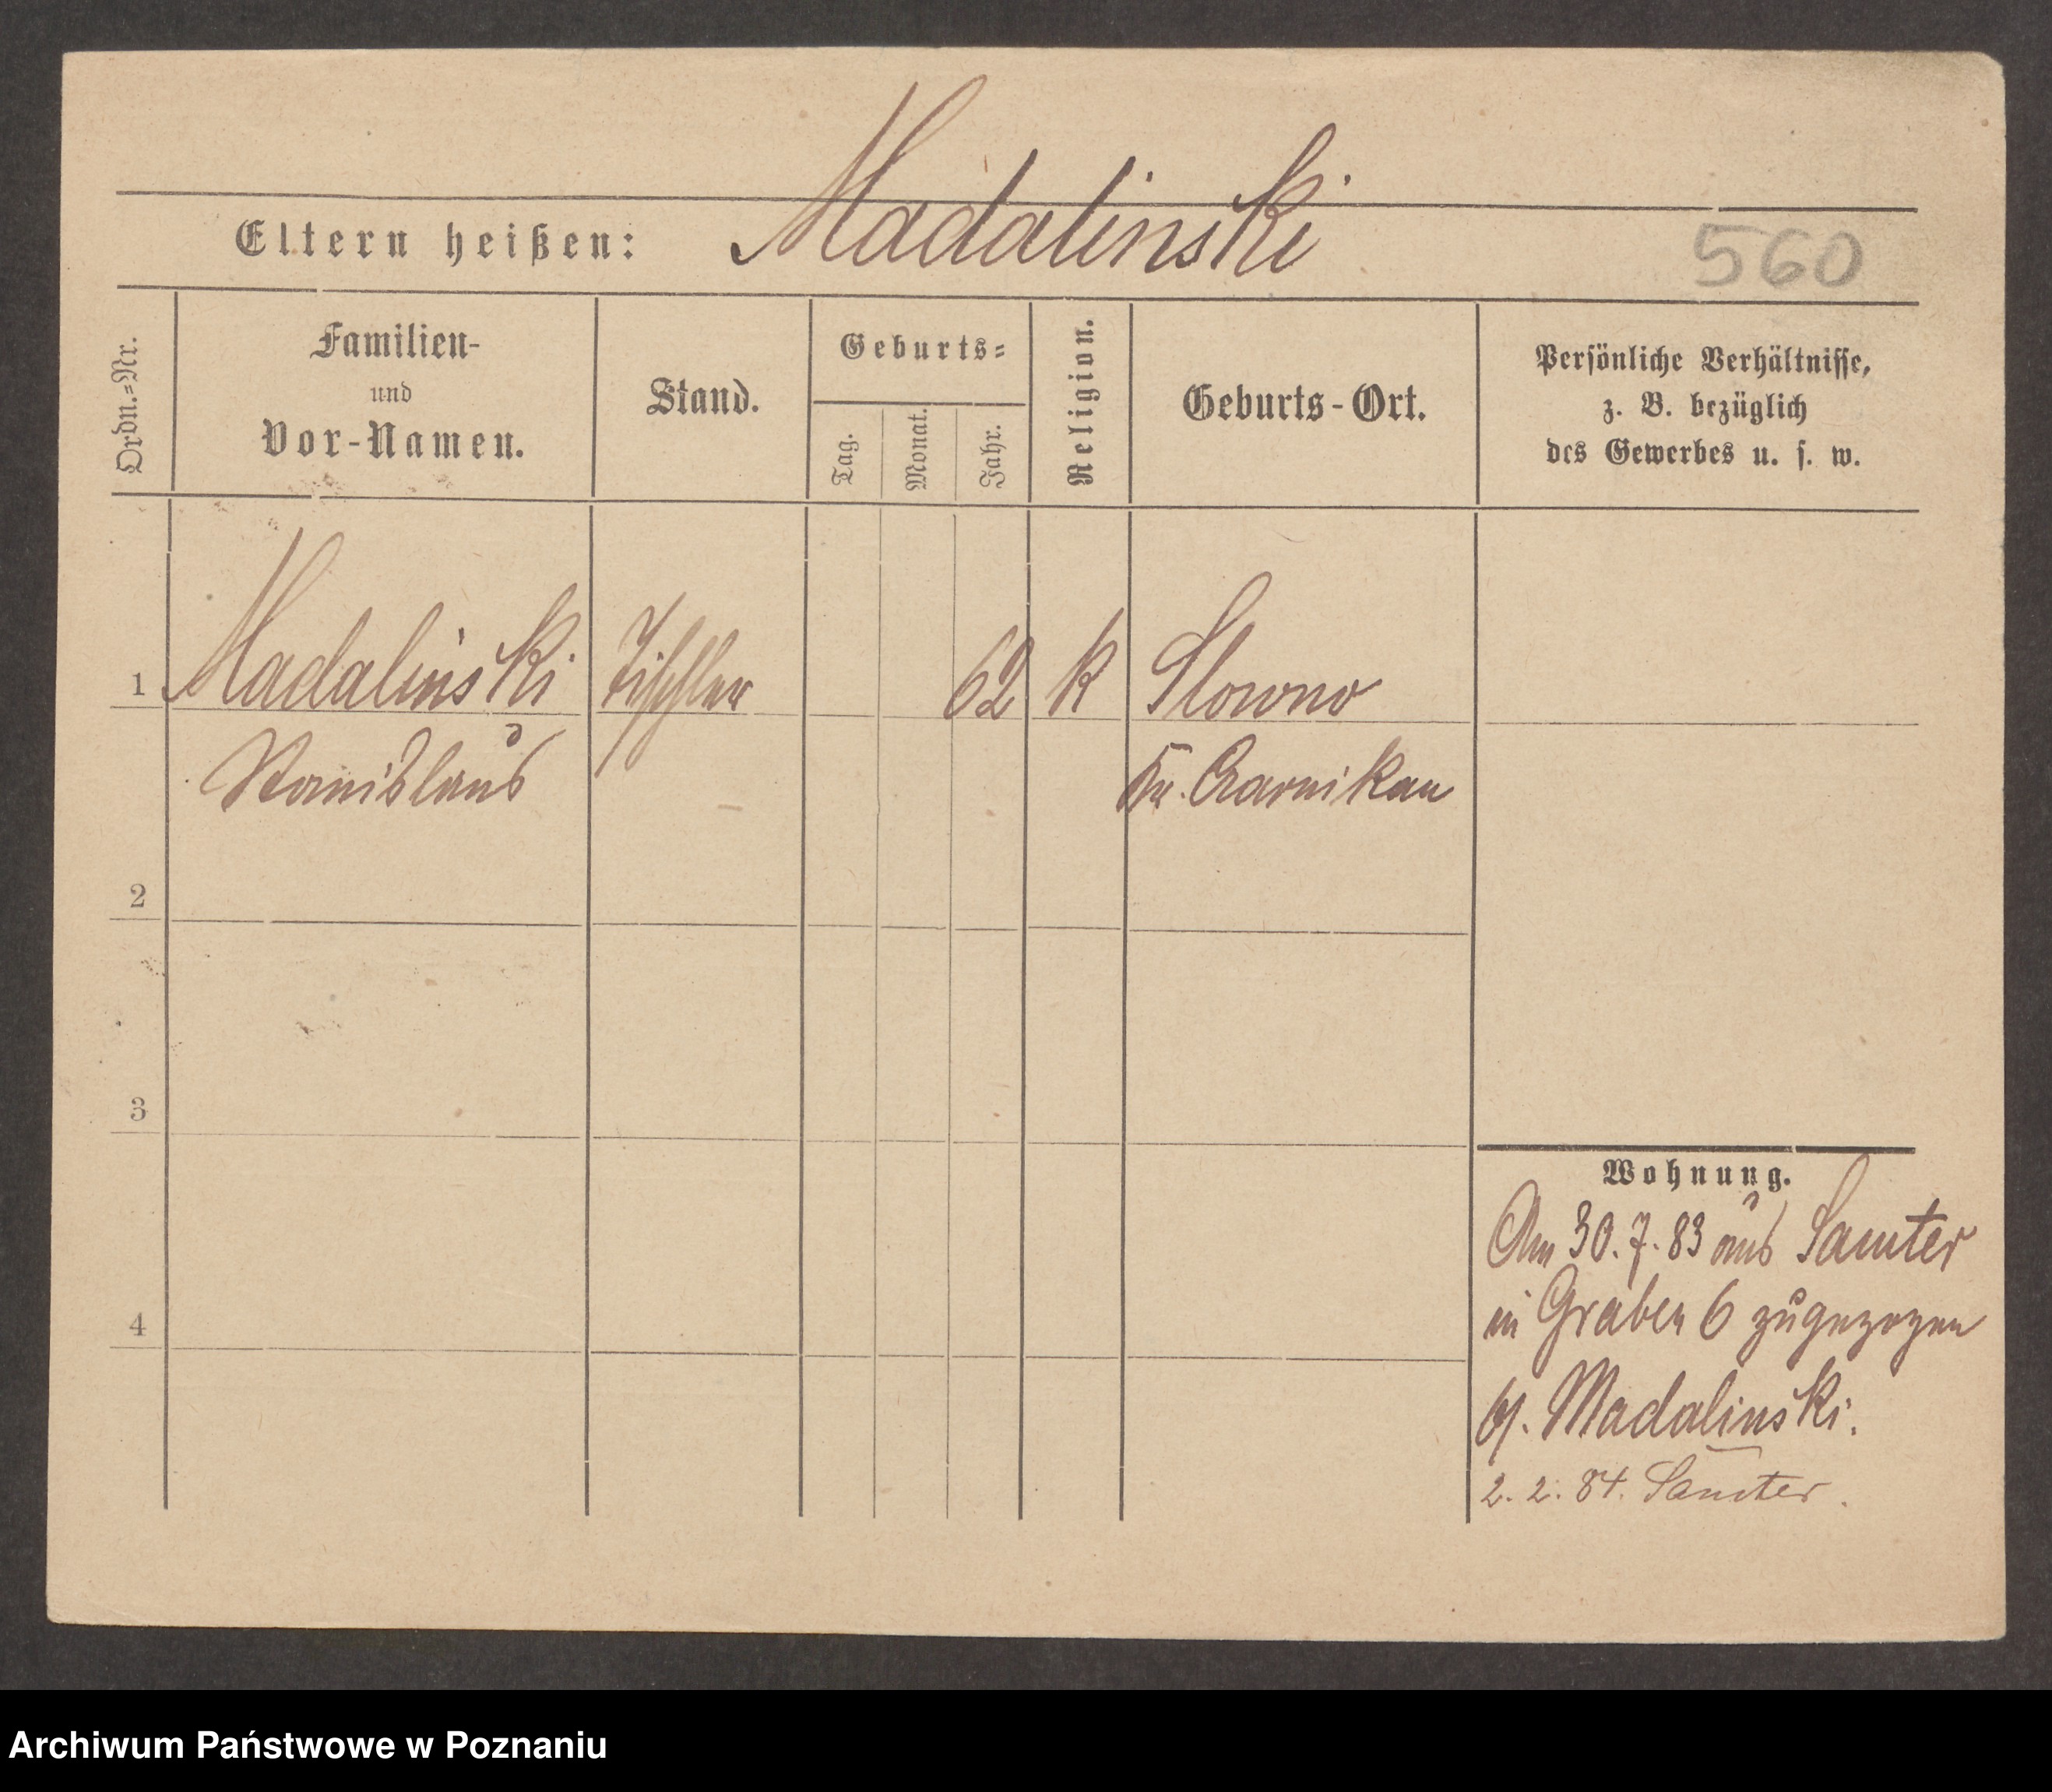 Madalinski
Eltern heißen:
560
Ordn.=Nr.
Familien-
und
Vor-Namen.
Stand.
Geburts=
Tag.
Monat.
Jahr.
Religion.
Geburts-Ort.
Persönliche Verhältnisse,
z. B. bezüglich
des Gewerbes u. s. w.
1 Madalinski Tischler 62 k Slowno
Stanislaus Kr. Czarnikau
2
3
4
Wohnung.
Am 30. 7. 83 aus Samter
in Graben 6 zugezogen
Madalinski.
2. 2. 84. Samter.
Archiwum Państwowe w Poznaniu